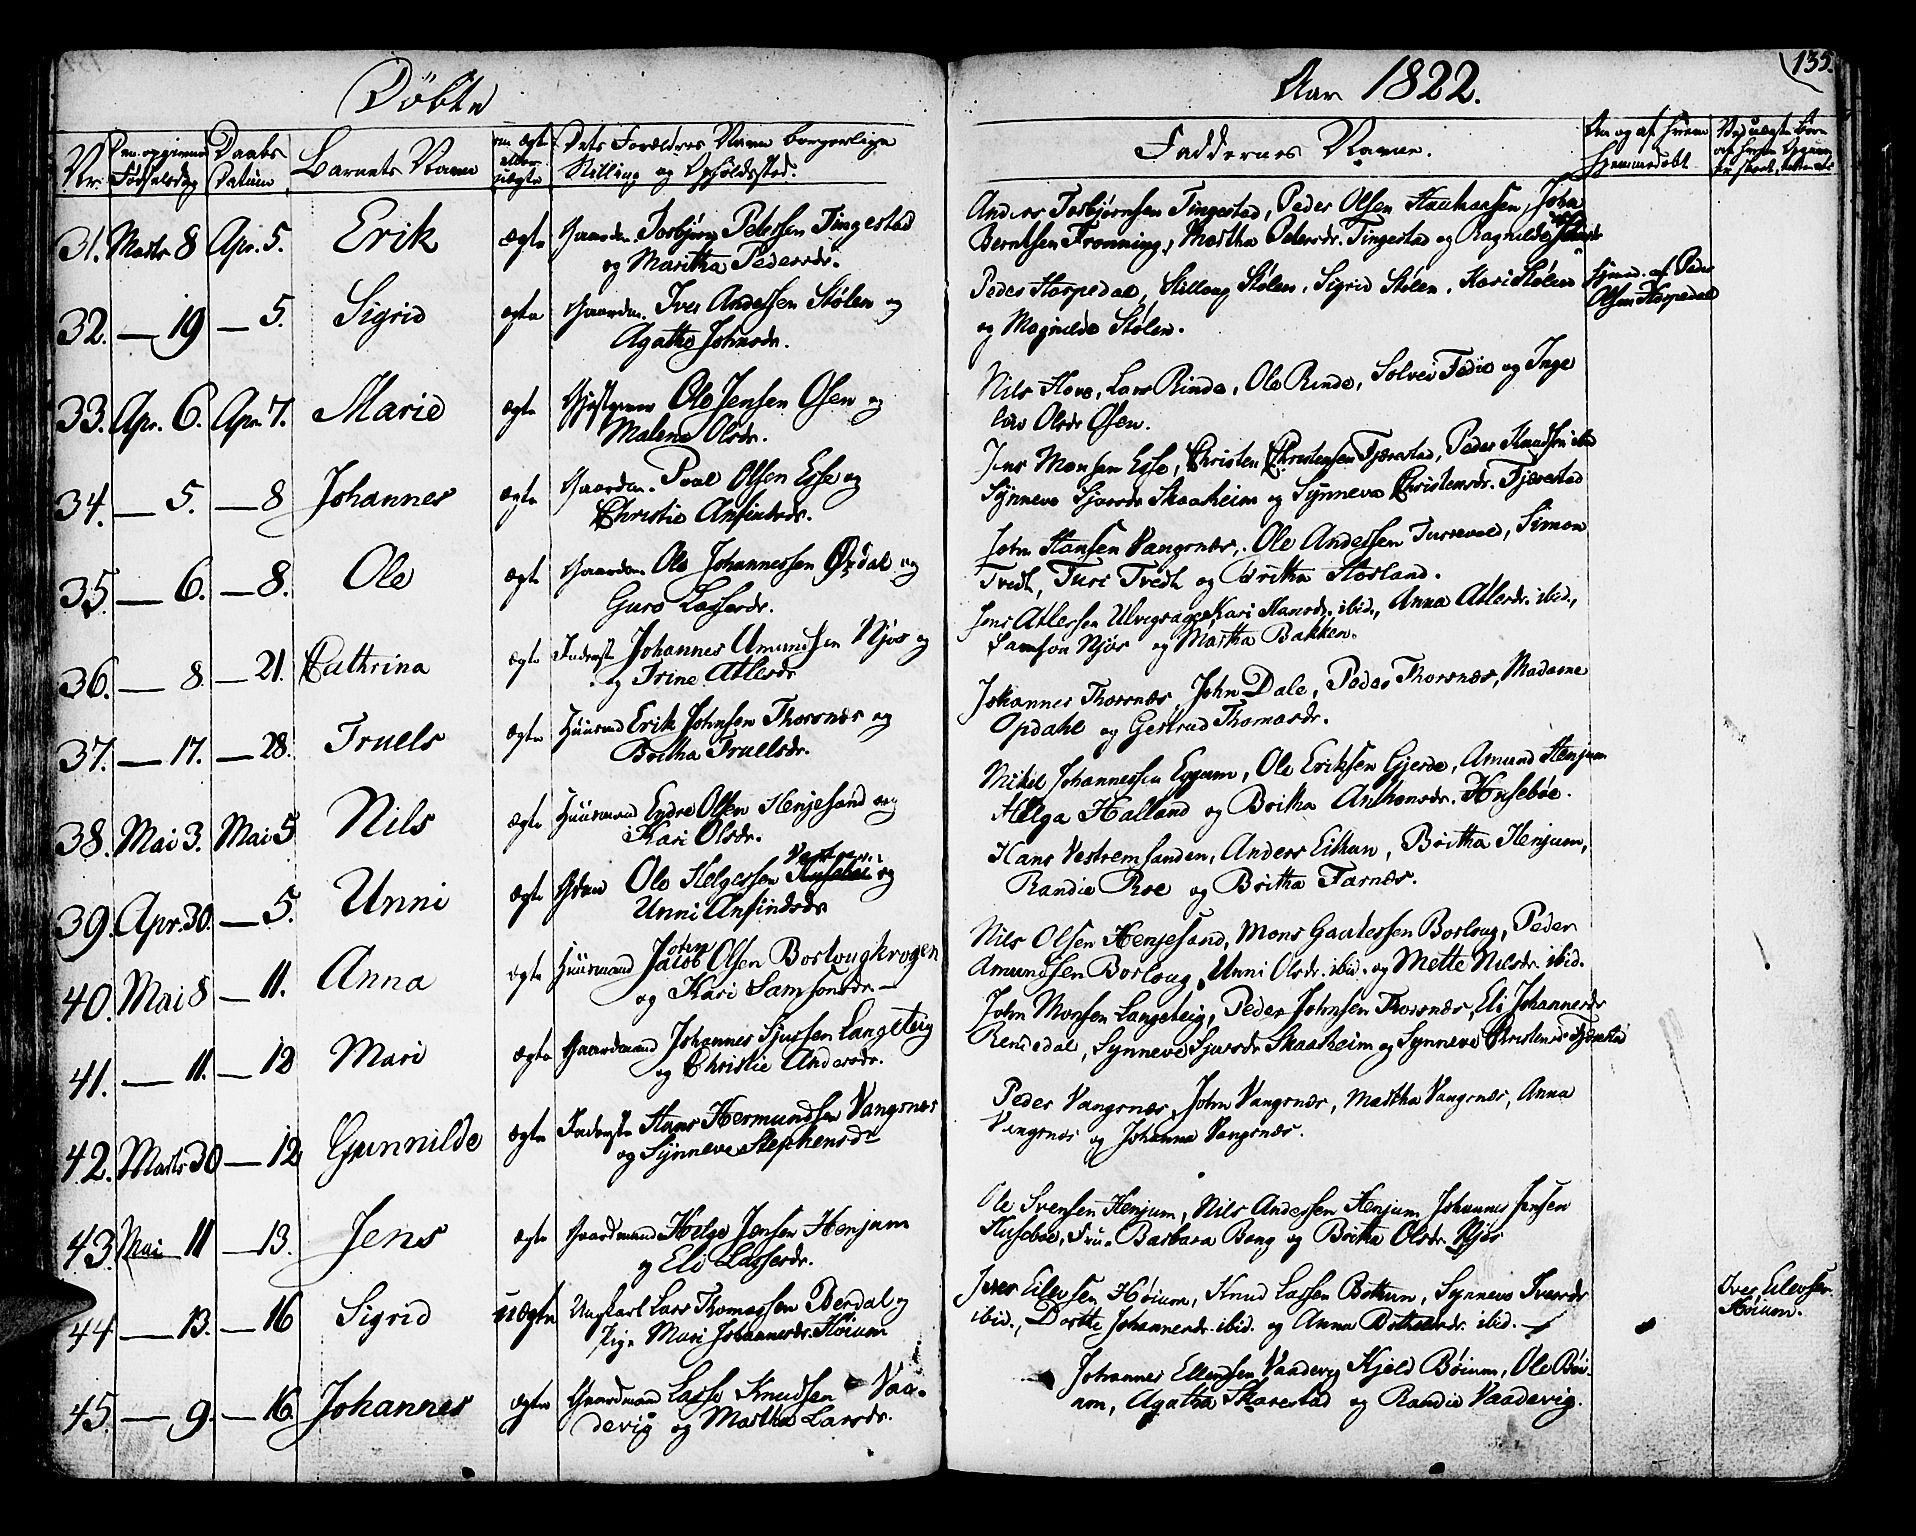 Döbte
Aar 1822.
135.
Nr.
Den opgivne Fødselsdag
Daabs Datum
Barnets Navn
om ægte eller uægte
Dets Forældres Navn borgerlige
Stilling og Opholdssted.
Faddernes Navne.
Om og af hvem
hjemmedøbt
31. Marts 8 Apr. 5. Erik ægte Gaardm. Torbjørn Petersen Tingestad
og Maritha Pedersdr.
Anders Torbjørnsen Tingestad, Peder Olsen Hauhansen, John
Berntsen Frønning, Martha Petersdr. Tingestad og Ragnilde
32. — 19 — 5. Sigrid ægte Gaardm. Iver Andersen Stølen og
Agatha Johnsdr.
Peder Horpedal, Stilloug Stølen, Sigrid Stølen, Kari Stølen
og Magnilde Stølen.
Hjemd. af Peder
Olsen Horpedal
33. Apr. 6. Apr. 7. Marie ægte Ole Jensen Osen og
Malene Olsdr.
Nils Hove, Lars Rinde, Ole Rinde, Solvei Fedie og Inge
Olsdr Osen.
34. — 5. — 8 Johannes ægte Gaardm. Poul Olsen Esse og
Christie Anfindsdr.
Jens Monsen Esse, Christen Christensen Fjærestad, Peder Knudsen ibid
Synneve Sjursdr Skaasheim og Synneva Christensdr. Fjærestad
35. — 6. — 8. Ole ægte Gaardm Ole Johannessen Ørdal og
Guro Lassesdr.
John Hansen Vangsnæs, Ole Andersen Turrevol, Simon
Tvedt, Turi Tvedt og Britha Horland.
36. — 8. — 21. Cathrina ægte Inderste Johannes Amundsen Njøs og
og Trine Atlesdr
Jens Atlessen Ulvegrager, Kari Hansdr. ibid., Anna Atlesdr. ibid.,
Samson Njøs og Martha Bakken.
37. — 17. — 28. Truels ægte Huusmd Erik Johnsen Thorsnæs og
Britha Truelsdr.
Johannes Thorsnæs, John Dale, Peder Thorsnæs, Madame
Opdahl og Gertrud Thomasdr.
38. Mai 3. Mai 5 Nils ægte Huusmand Endre Olsen Henjesand og
Kari Olsdr.
Mikel Johannessen Eggum, Ole Eriksen Gjerde, Amund Henjum
Helga Halland og Britha Anthonsdr. Husebøe.
39. Apr. 30. — 5. Unni ægte Ole Helgessen Husebøe og
Unni Anfindsdr
Hans Vestremsanden, Anders Eithun, Britha Henjum,
Randie Roe og Britha Farnæs.
40. Mai 8 — 11. Anna ægte Huusmand John Jacob Olsen Borlougkrogen
og Kari Samsonsdr —
Nils Olsen Henjesand, Mons Gautessen Borloug, Peder
Amundsen Borloug, Unni Olsdr. ibid. og Mette Nilsdr. ibid.
41. — 11. — 12 Mari ægte Gaardmand Johannes Sjursen Langeteig
og Christie Andersdr.
John Monsen Langeteig, Peder Johnsen Thorsnæs, Eli Johannesdr
Rendedal, Synneve Sjursdr Skaasheim og Synneve Christensdr Fjærestad
42. Marts 30 — 12 Gunnilde ægte Inderste Hans Hermundsen Vangsnæs
og Synneve Stephensdr
Peder Vangsnæs, John Vangsnæs, Martha Vangsnæs, Anna
Vangsnæs og Johanna Vangsnæs.
43. Mai 11 — 13. Jens ægte Gaardmand Helge Jensen Henjum
og Eli Lassesdr.
Ole Svensen Henjum, Nils Andersen Henjum, Johannes Jensen
Husebøe, Fru Barbara Bong og Britha Olsdr. Njøs
44 — 13. — 16 Sigrid uægte Ungkarl Lars Thomassen Berdal og
Pige Mari Johannesdr. Høium
Iver Eilevsen Høium, Knud Lassen Bothun, Synneve Iversdr
ibid., Dorthe Johannesdr. ibid. og Anna ibid. —
Iver Eilevsen
Høium.
45. — 9. — 16. Johannes ægte Gaardmand Lasse Knudsen Vaa-
devig og Martha Larsdr.
Johannes Ellendsen Vaadevig, Kjeld Bøium, Ole Bøi-
um, Agatha Skarestad og Randie Vaadevig.